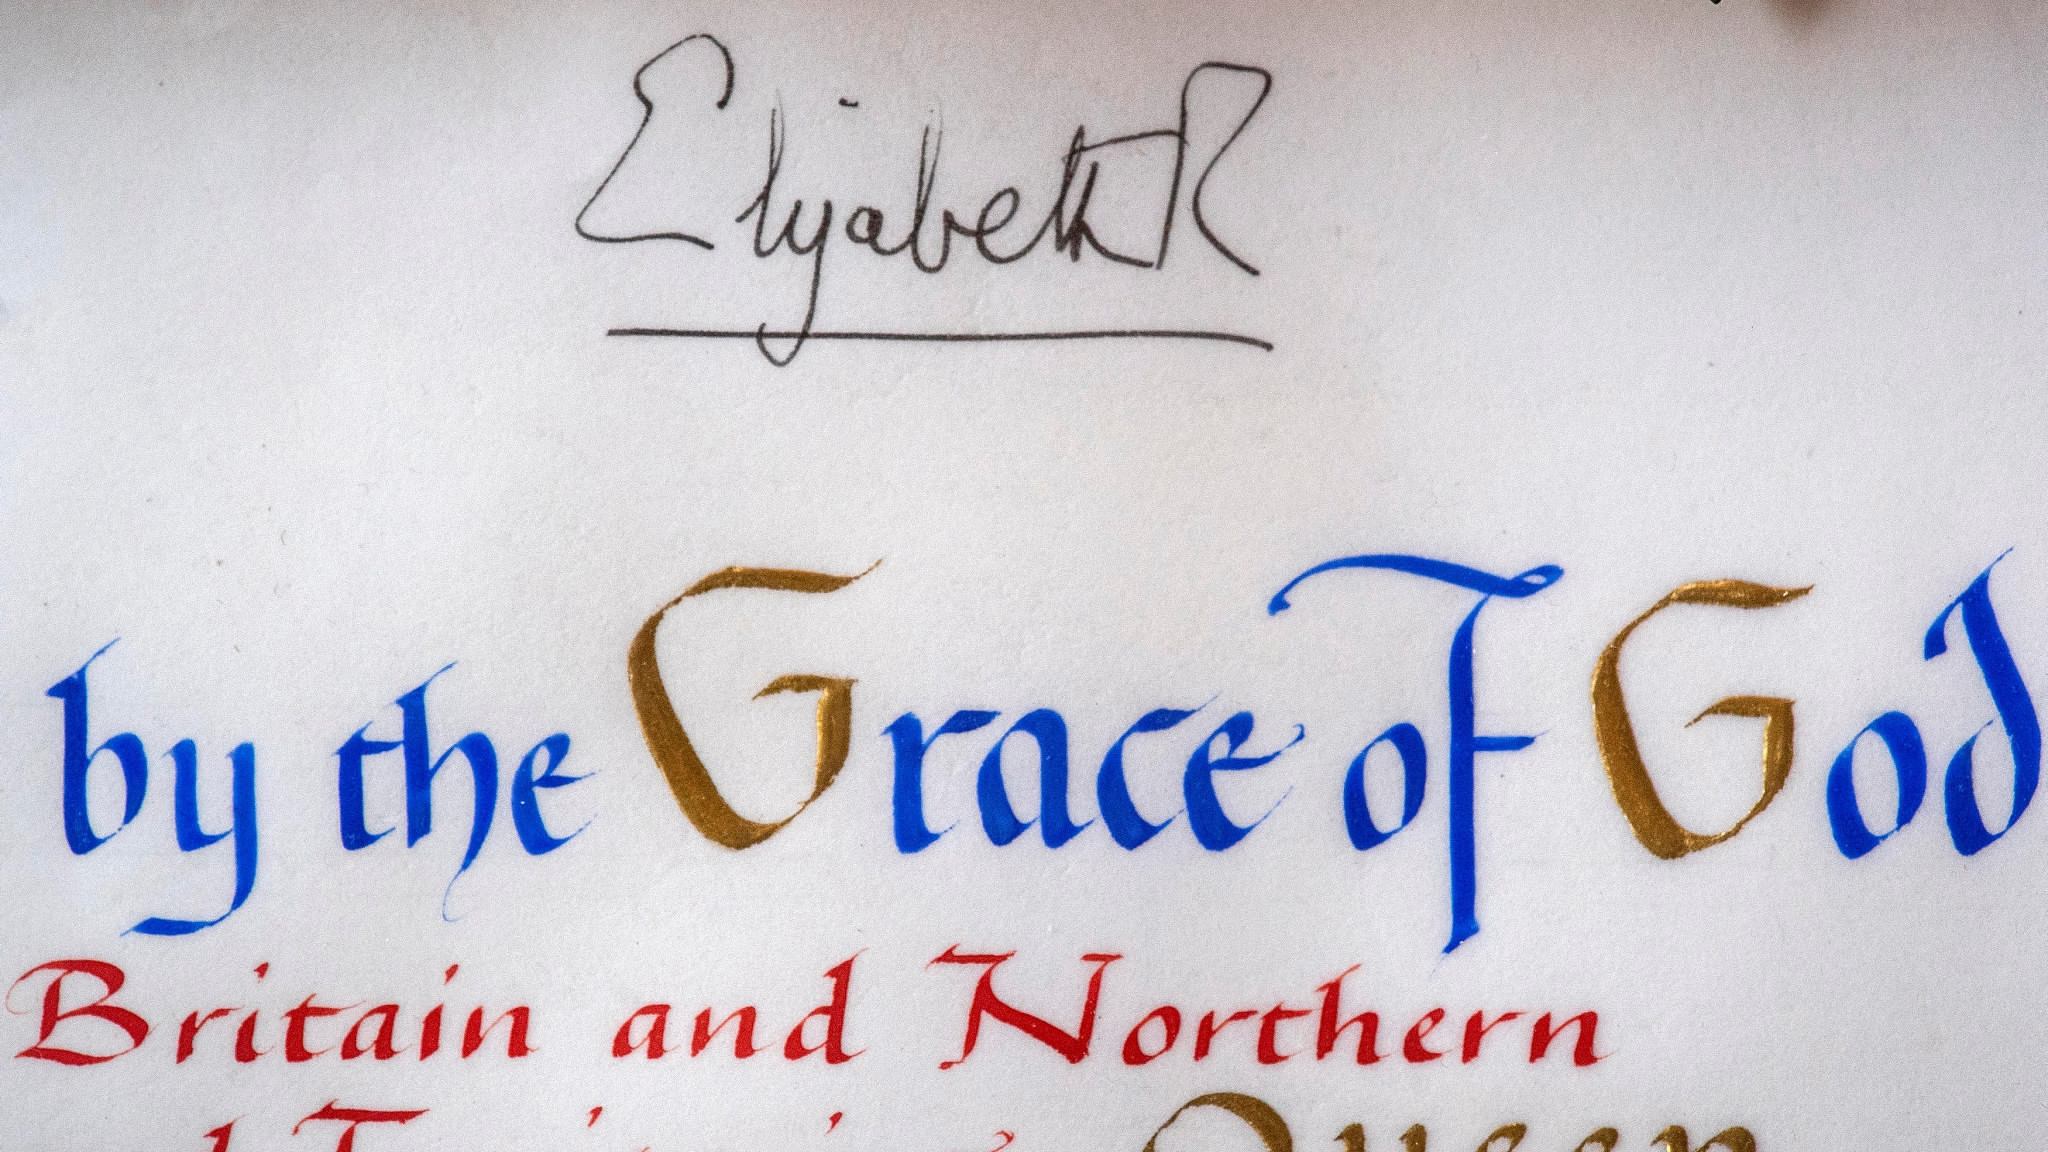 Elizabeth R
by the Grace of God
Britain and Northern
Territories Queen